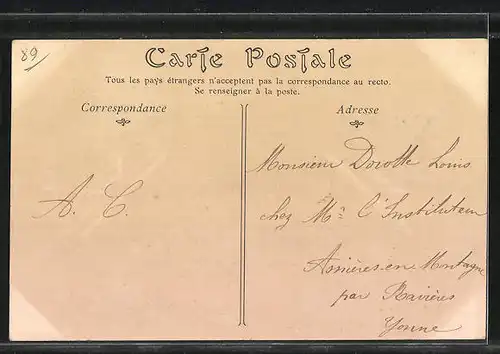 89
Carte Postale
Tous les pays étrangers n'acceptent pas la correspondance au recto.
Se renseigner à la poste.
Correspondance
Adresse
A. C.
Monsieur Dorotte Louis
chez Mr l'Instituteur
Asnières-en-Montagne
par Ravières
Yonne